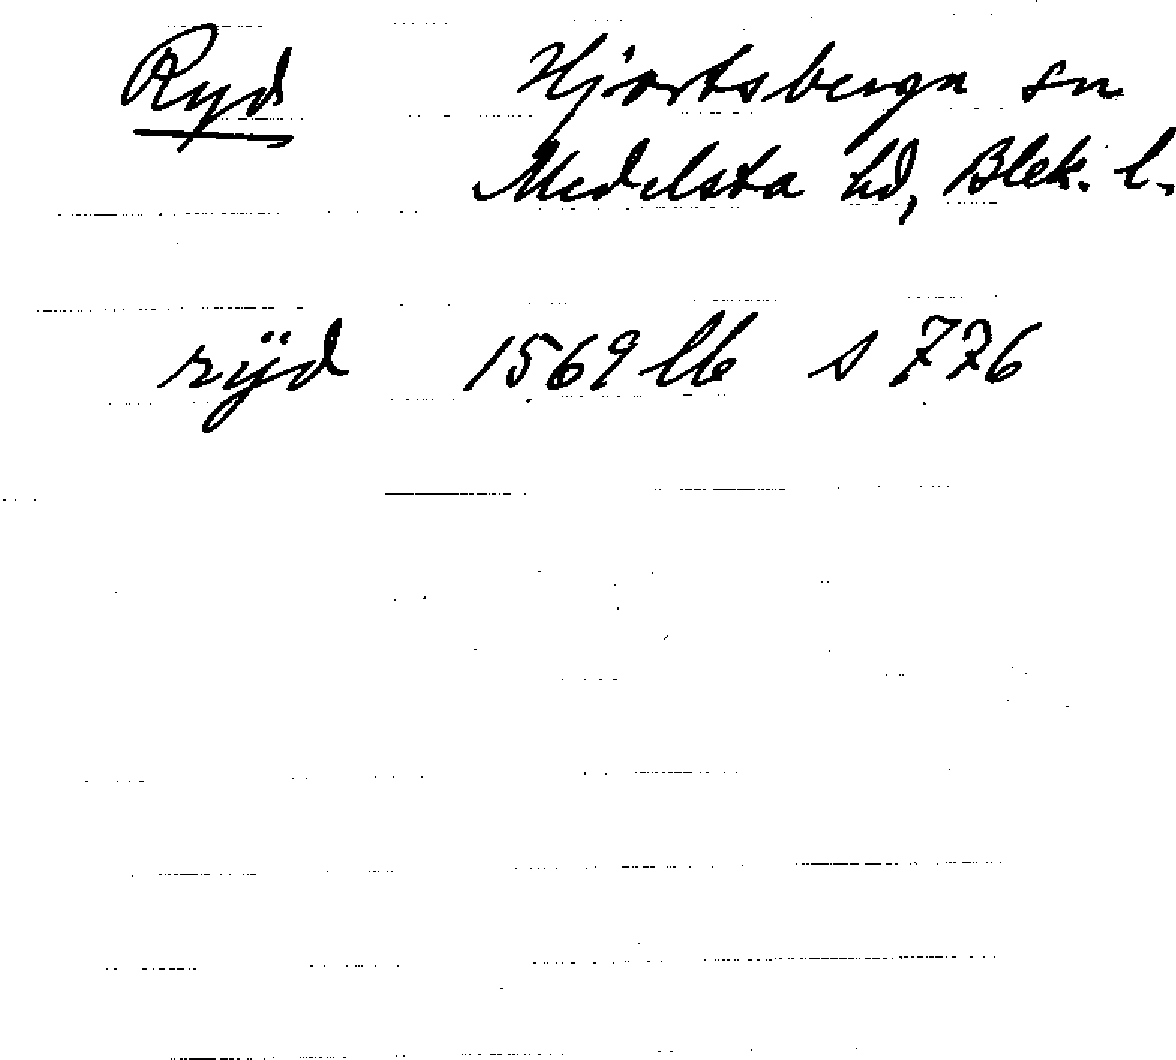 Ryd Hjortsberga sn
Medelsta hd, Blek. l.
rÿd 1569 lb s 776